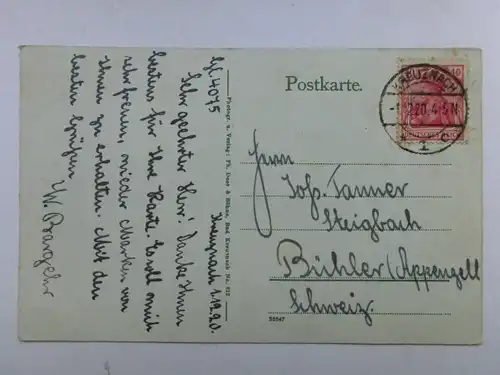 Lfl. 4075
Kreuznach 1.12.20.
Sehr geehrter Herr! Danke Ihnen
bestens für Ihre Karte. Es soll mich
sehr freuen, wieder Marken von
Ihnen zu erhalten. Mit den
besten Grüßen
Photogr. u. Verlag: Ph. Dust & Söhne, Bad Kreuznach No.
Postkarte.
KREUZNACH
20. 4-5 N
1
10
DEUTSCHES REICH
Herrn
Jos. Tanner
Steigbach
Bühler (Appenzell
Schweiz.